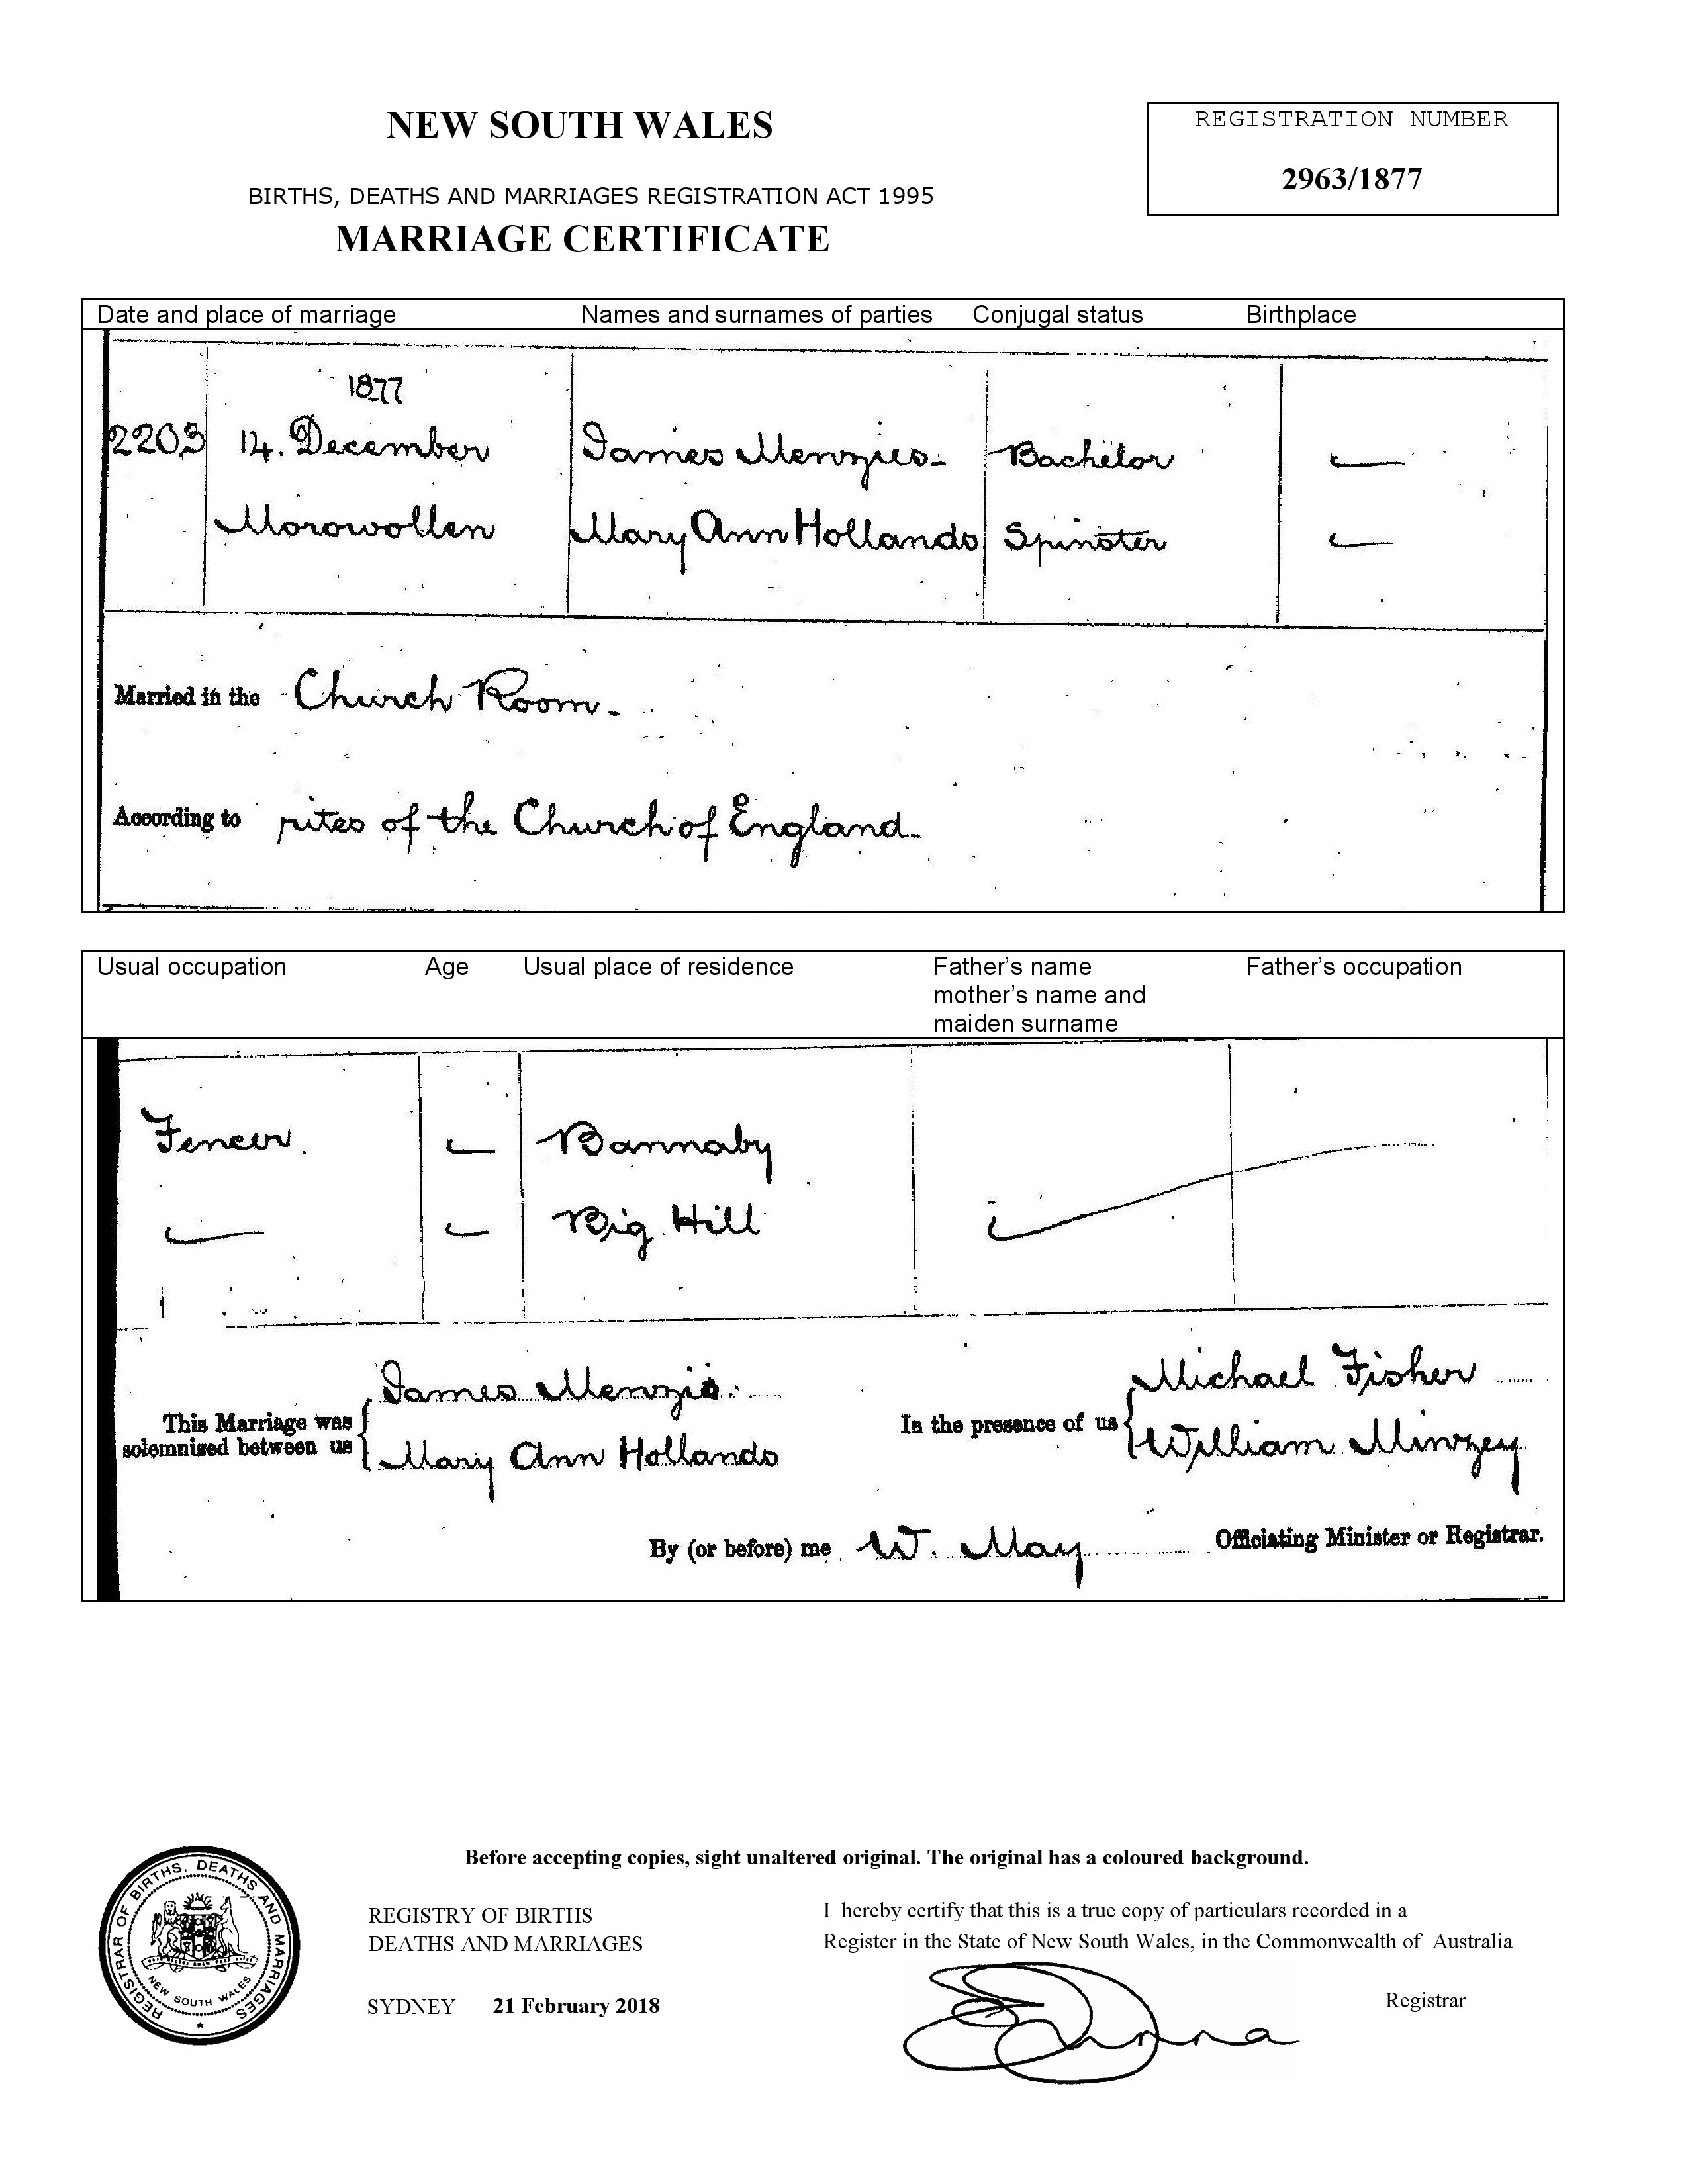 NEW SOUTH WALES
REGISTRATION NUMBER
2963/1877
BIRTHS, DEATHS AND MARRIAGES REGISTRATION ACT 1995
MARRIAGE CERTIFICATE
Date and place of marriage Names and surnames of parties Conjugal status Birthplace
1877
2203 14. December James Menzies- Bachelor
Morowollen Mary Ann Hollands Spinster
Married in the Church Room-
According to rites of the Church of England-
Usual occupation Age Usual place of residence Father's name Father's occupation
mother's name and
maiden surname
Fencer. Bannaby
Big Hill
This Marriage was solemnised between us James Menzis
Mary Ann Hollands
In the presence of us Michael Fisher
William Minzey
By (or before) me W. May Officiating Minister or Registrar.
Before accepting copies, sight unaltered original. The original has a coloured background.
REGISTRAR OF BIRTHS, DEATHS AND MARRIAGES
NEW SOUTH WALES
REGISTRY OF BIRTHS
DEATHS AND MARRIAGES
SYDNEY 21 February 2018
I hereby certify that this is a true copy of particulars recorded in a
Register in the State of New South Wales, in the Commonwealth of Australia
Registrar